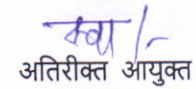 स्वा/-
अतिरीक्त आयुक्त